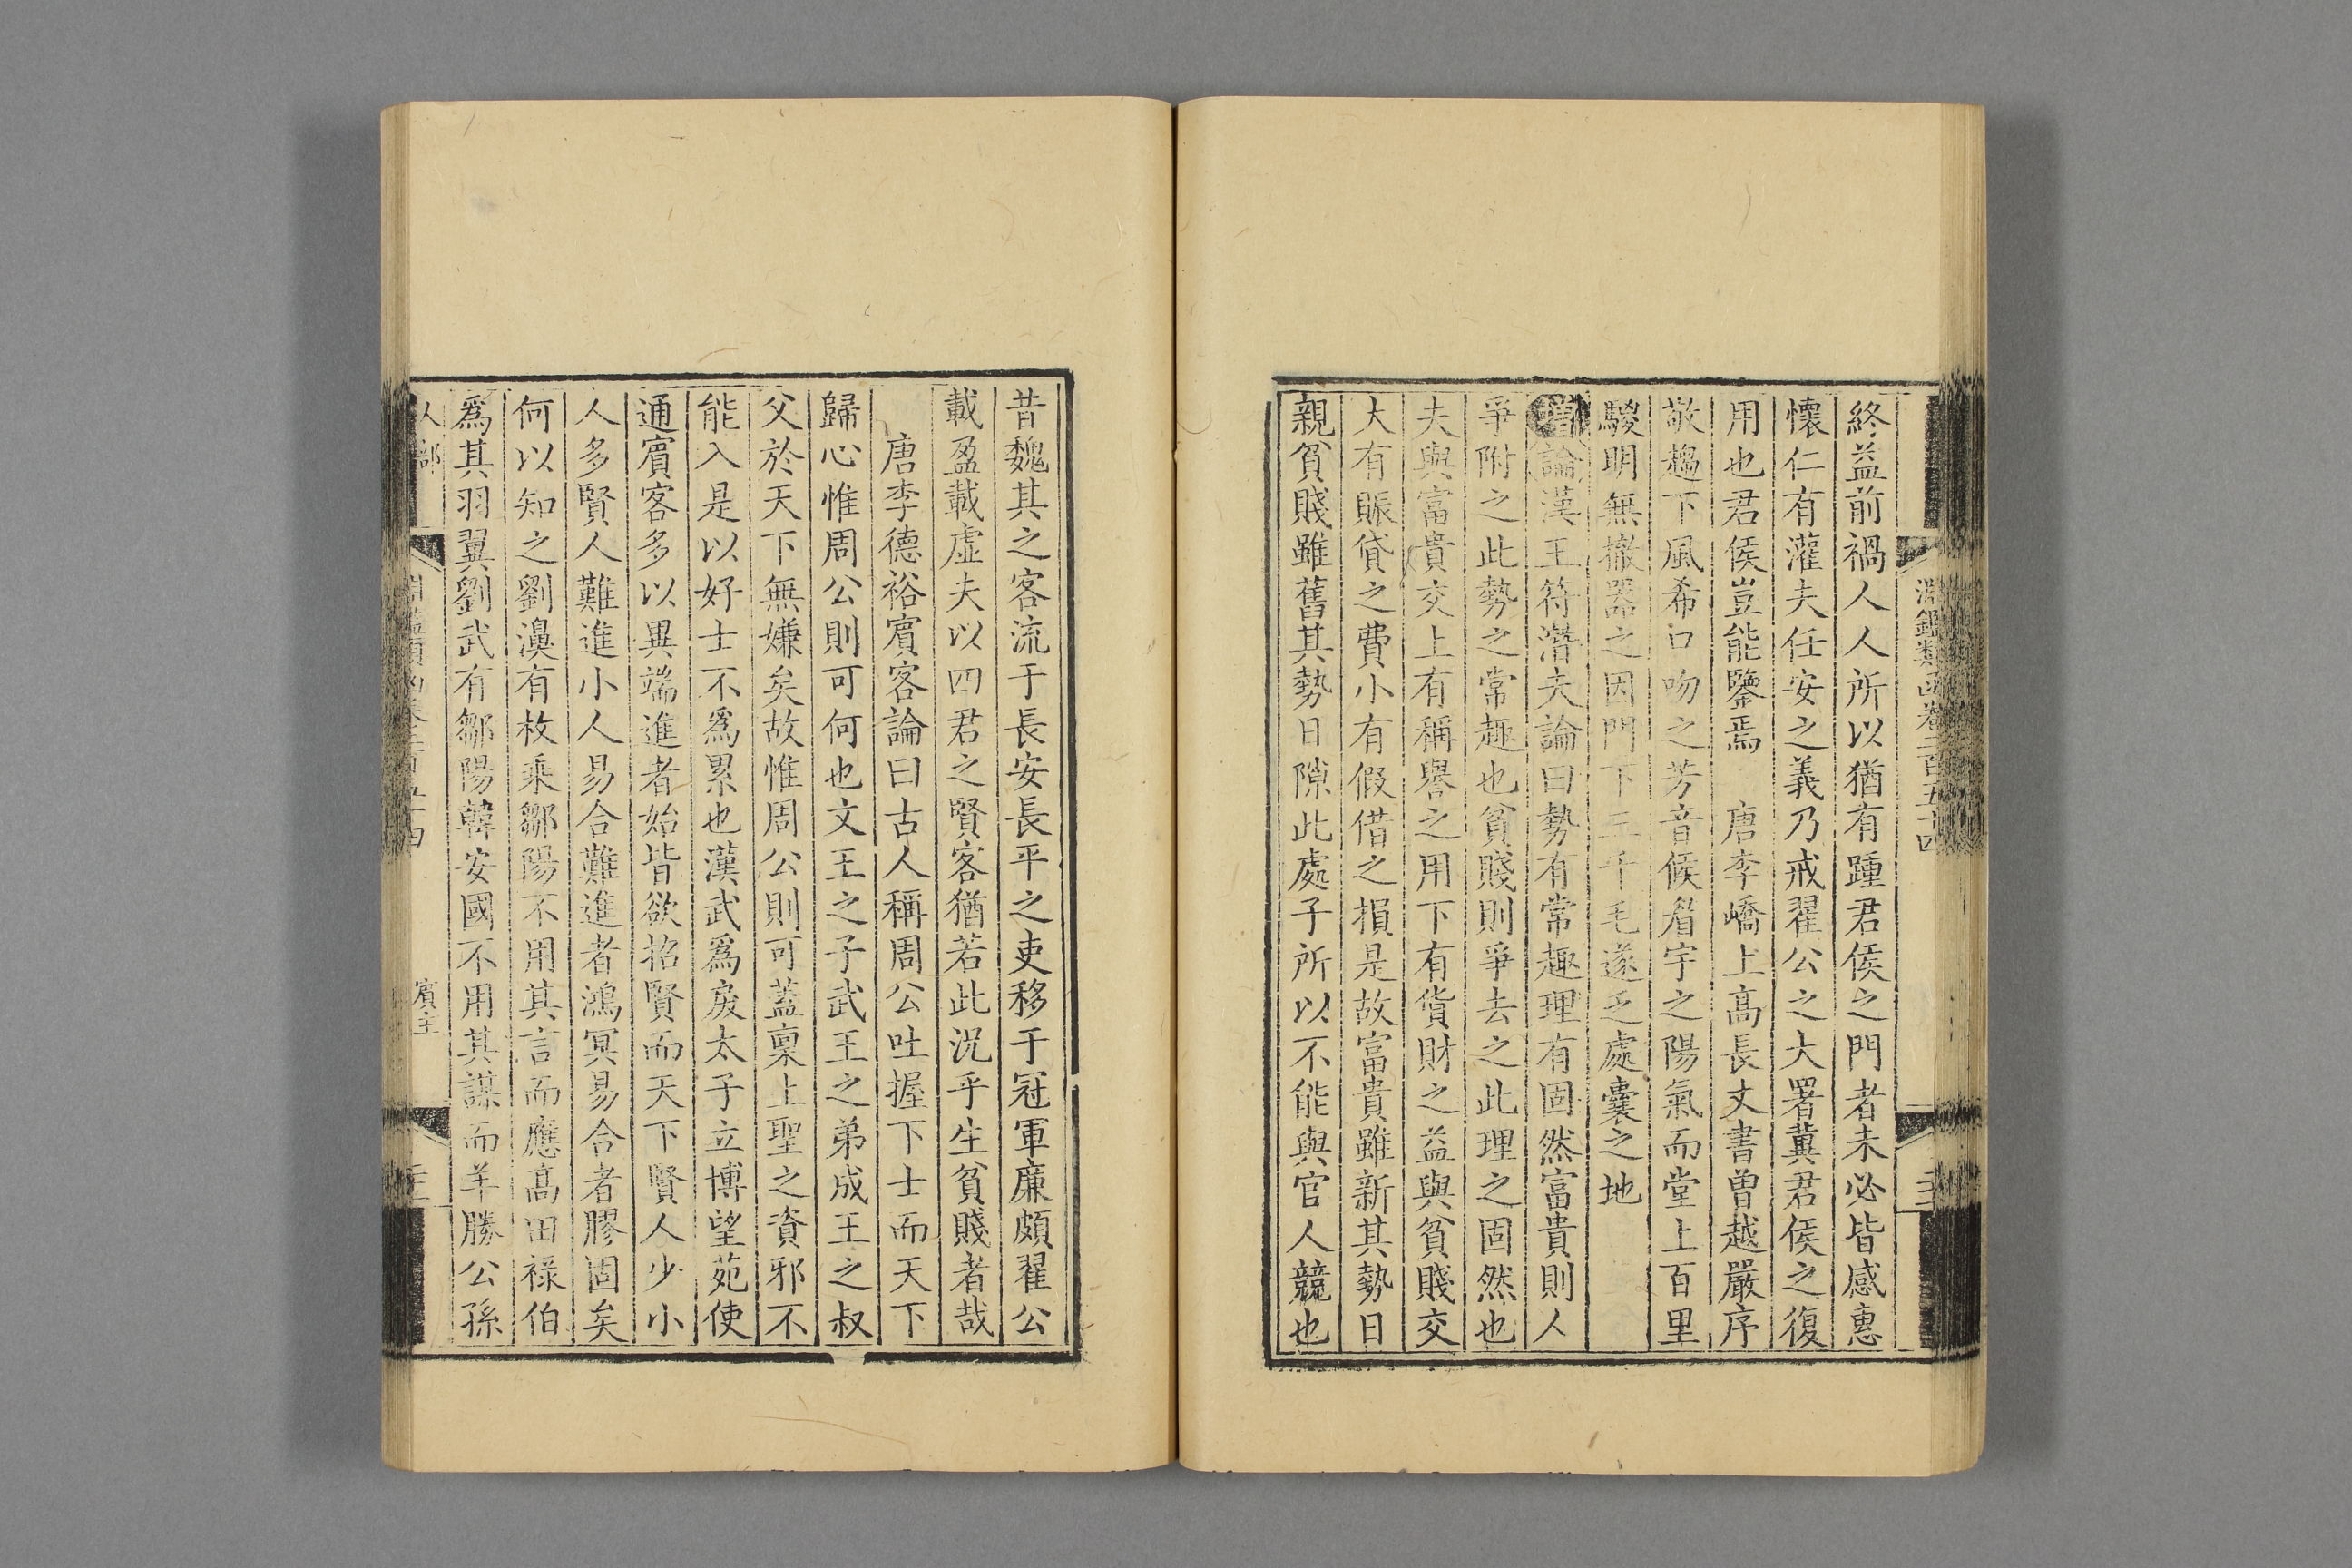 淵鑑類函卷二百五十四
終益前禍人人所以猶有踵君侯之門者未必皆感惠
懷仁有灌夫任安之義乃戒翟公之大署冀君侯之復
用也君侯豈能鑒焉 唐李嶠上高長史書曾越嚴序
敬趨下風希口吻之芳音候眉宇之陽氣而堂上百里
駿明無撤器之因門下三千毛遂乏處囊之地
增論漢王符潛夫論曰勢有常趣理有固然富貴則人
爭附之此勢之常趣也貧賤則爭去之此理之固然也
夫與富貴交上有稱譽之用下有貨財之益與貧賤交
大有賑貸之費小有假借之損是故富貴雖新其勢日
親貧賤雖舊其勢日隙此處子所以不能與官人競也
昔魏其之客流于長安長平之吏移于冠軍廉頗翟公
載盈載虛夫以四君之賢客猶若此況乎生貧賤者哉
唐李德裕賓客論曰古人稱周公吐握下士而天下
歸心惟周公則可何也文王之子武王之弟成王之叔
父於天下無嫌矣故惟周公則可蓋稟上聖之資邪不
能入是以好士不爲累也漢武爲戾太子立博望苑使
通賓客多以異端進者始皆欲招賢而天下賢人少小
人多賢人難進小人易合難進者鴻冥易合者膠固矣
何以知之劉濞有枚乘鄒陽不用其言而應高田祿伯
爲其羽翼劉武有鄒陽韓安國不用其謀而羊勝公孫
人部
淵鑑類函卷二百五十四
賓主